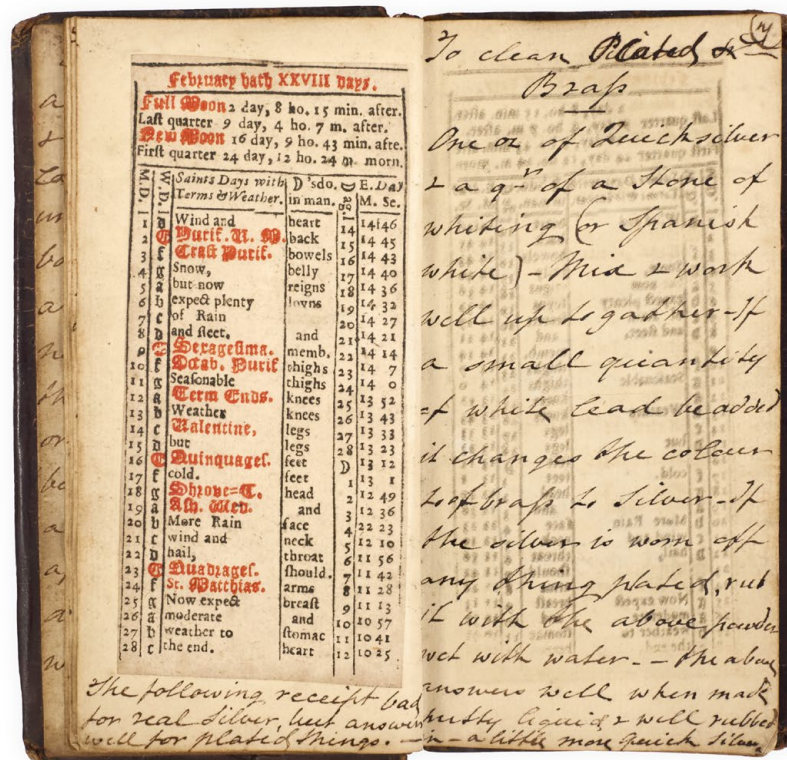 February hath XXVIII days.
Full Moon 2 day, 8 ho. 15 min. after.
Last quarter 9 day, 4 ho. 7 m. after.
New Moon 16 day, 9 ho. 43 min. afte.
First quarter 24 day, 12 ho. 24 m morn.
M.D. W.D. Saints Days with Terms & Weather. D'sdo. in man. D age E. Day M. Sc.
1 d Wind and heart 14 14 46
2 e Purif. V. M. back 15 14 45
3 f Crast Purif. bowels 16 14 43
4 g Snow, belly 17 14 40
5 a but now reigns 18 14 36
6 b expect plenty loyns 19 14 32
7 c of Rain 20 14 27
8 d and sleet. and 21 14 21
9 e Sexagesima. memb. 22 14 14
10 f Octab. Purif thighs 23 14 7
11 g Seasonable thighs 24 14 0
12 a Term Ends. knees 25 13 52
13 b Weather knees 26 13 43
14 c Valentine, legs 27 13 33
15 d but legs 28 13 23
16 e Quinquages. feet D 13 12
17 f cold. feet 1 13 1
18 g Shrove=T. head 2 12 49
19 a Ash. Wed. and 3 12 36
20 b More Rain face 4 22 23
21 c wind and neck 5 12 10
22 d hail, throat 6 11 56
23 e Quadrages. should. 7 11 42
24 f St. Matthias. arms 8 11 28
25 g Now expect breast 9 11 13
26 a moderate and 10 10 57
27 b weather to stomac 11 10 41
28 c the end. heart 12 10 25
The following receipt bad
for real silver, but answers
well for plated things. —
To clean Plated &
Brass
One oz of Quicksilver
& a qr of a Stone of
whiting (or Spanish
white) - Mix & work
well up to gather - If
a small quantity
of white lead be added
it changes the colour
of brass to silver - If
the silver is worn off
any thing plated, rub
it with the above powder
wet with water. - the above
answers well when made
putty liquid & will rubbed
in - a little more quick silver